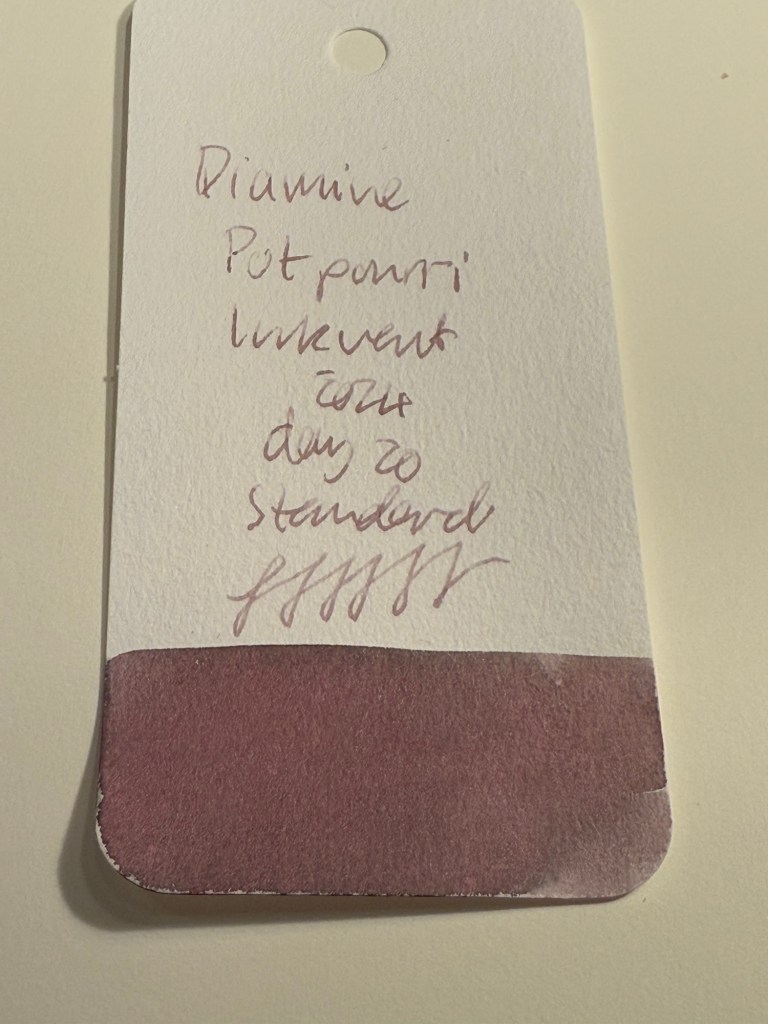 Diamine
Potpourri
Inkvent
2024
day 20
Standard